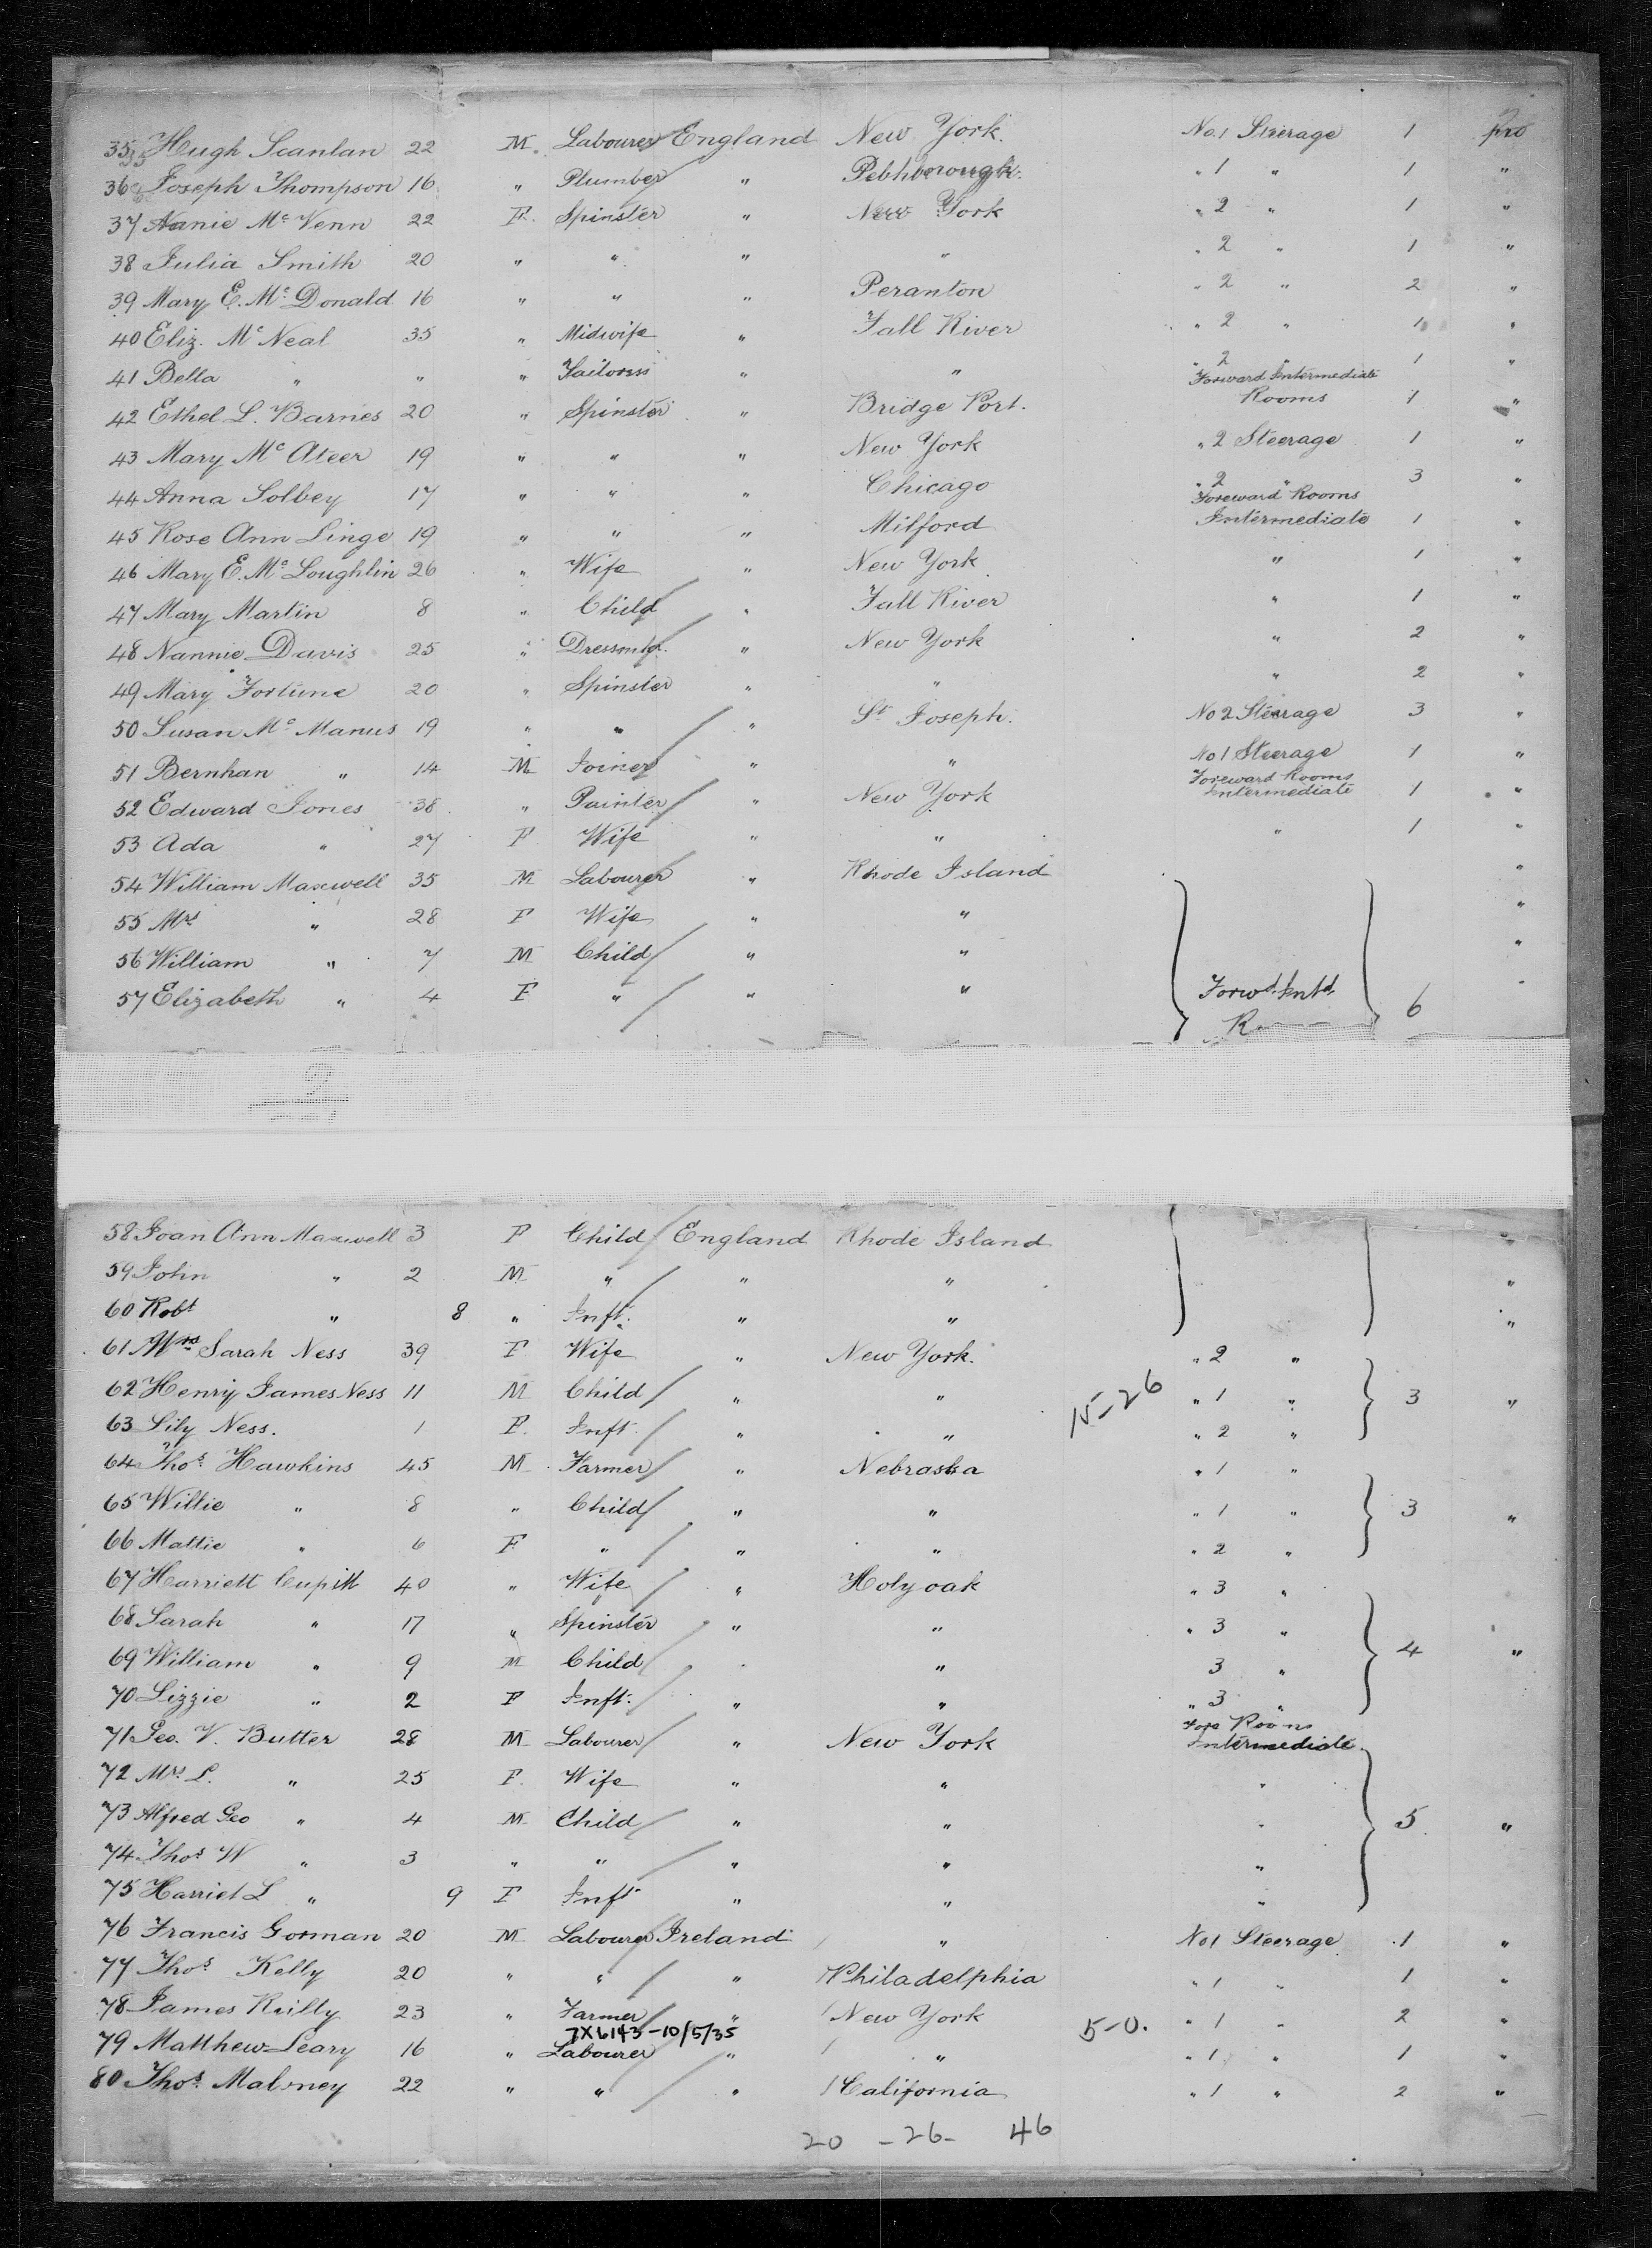 35 Hugh Scanlan 22 M. Labourer England New York. No.1 Steerage 1 pro
36 Joseph Thompson 16 " Plumber " " 1 " 1 "
37 Nanie Mc Venn 22 F. Spinster " New York " 2 " 1 "
38 Julia Smith 20 " " " " " 2 " 1 "
39 Mary E. Mc Donald 16 " " " Peranton " 2 " 2 "
40 Eliz. Mc Neal 35 " Midwife " Fall River " 2 " 1 "
41 Bella " " " Tailoress " " " 2 " 1 "
42 Ethel L. Barnes 20 " Spinster " Bridge Port. Forward Intermediate Rooms 1 "
43 Mary Mc Ateer 19 " " " New York " 2 Steerage 1 "
44 Anna Solbey 17 " " " Chicago " 2 " 3 "
45 Rose Ann Linge 19 " " " Milford Foreward Rooms Intermediate 1 "
46 Mary E. Mc Loughlin 26 " Wife " New York " 1 "
47 Mary Martin 8 " Child " Fall River " 1 "
48 Nannie Davis 25 " Dressmkr. " New York " 2 "
49 Mary Fortune 20 " Spinster " " " 2 "
50 Susan Mc Manus 19 " " " St Joseph. No 2 Steerage 3 "
51 Bernhan " 14 M Joiner " " No 1 Steerage 1 "
52 Edward Jones 38 " Painter " New York Foreward Rooms Intermediate 1 "
53 Ada " 27 F Wife " " " 1 "
54 William Maxwell 35 M Labourer " Rhode Island "
55 Mrs " 28 F Wife " " "
56 William " 7 M Child " " "
57 Elizabeth " 4 F " " " Forwd. Intd. 6 "
58 Joan Ann Maxwell 3 F Child England Rhode Island "
59 John " 2 M " " " "
60 Robt " 8 " Inft. " " "
61 Mrs Sarah Ness 39 F Wife " New York. " 2 " "
62 Henry James Ness 11 M Child " " 15-26 " 1 " 3 "
63 Lily Ness. 1 F. Inft. " " " 2 "
64 Thos. Hawkins 45 M Farmer " Nebraska " 1 "
65 Willie " 8 " Child " " " 1 " 3 "
66 Mattie " 6 F " " " " 2 "
67 Harriett Cupitt 40 " Wife " Holyoak " 3 "
68 Sarah " 17 " Spinster " " " 3 "
69 William " 9 M Child " " 3 " 4 "
70 Lizzie " 2 F Inft. " " " 3 "
71 Geo. V. Butter 28 M Labourer " New York Fore Rooms Intermediate.
72 Mrs. L. " 25 F. Wife " " "
73 Alfred Geo " 4 M Child " " " 5 "
74 Thos. W " 3 " " " " "
75 Harriet L " 9 F Inft " " "
76 Francis Gorman 20 M Labourer Ireland " No 1 Steerage 1 "
77 Thos. Kelly 20 " " " Philadelphia " 1 " 1 "
78 James Reilly 23 " Farmer " New York 5-0. " 1 " 2 "
7X6143-10/5/35
79 Matthew Leary 16 " Labourer " " " 1 " 1 "
80 Thos. Maloney 22 " " " California " 1 " 2 "
20 - 26 - 46